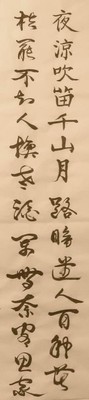 夜涼吹笛千山月路暗迷人百種花
棋罷不知人換世酒闌無奈客思家